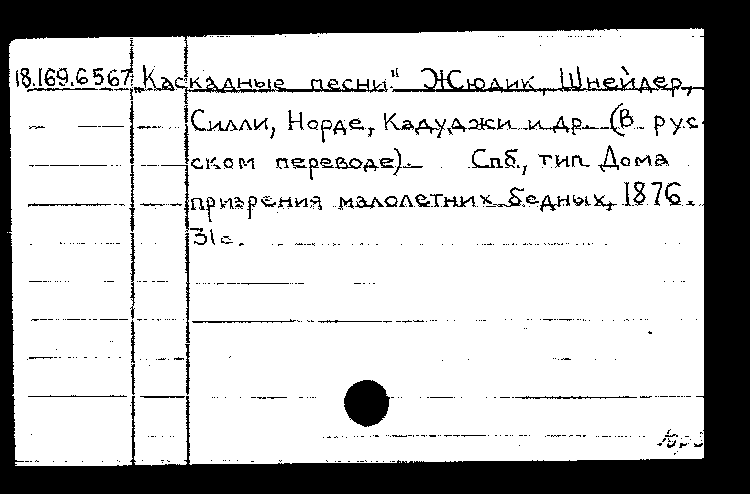 18.169.6567 „Каскадные песни“ Жюдик, Шнейдер,
Силли, Норде, Кадуджи и др. (В рус-
ском переводе).— Спб., тип. Дома
призрения малолетних бедных, 1876.
31 с.